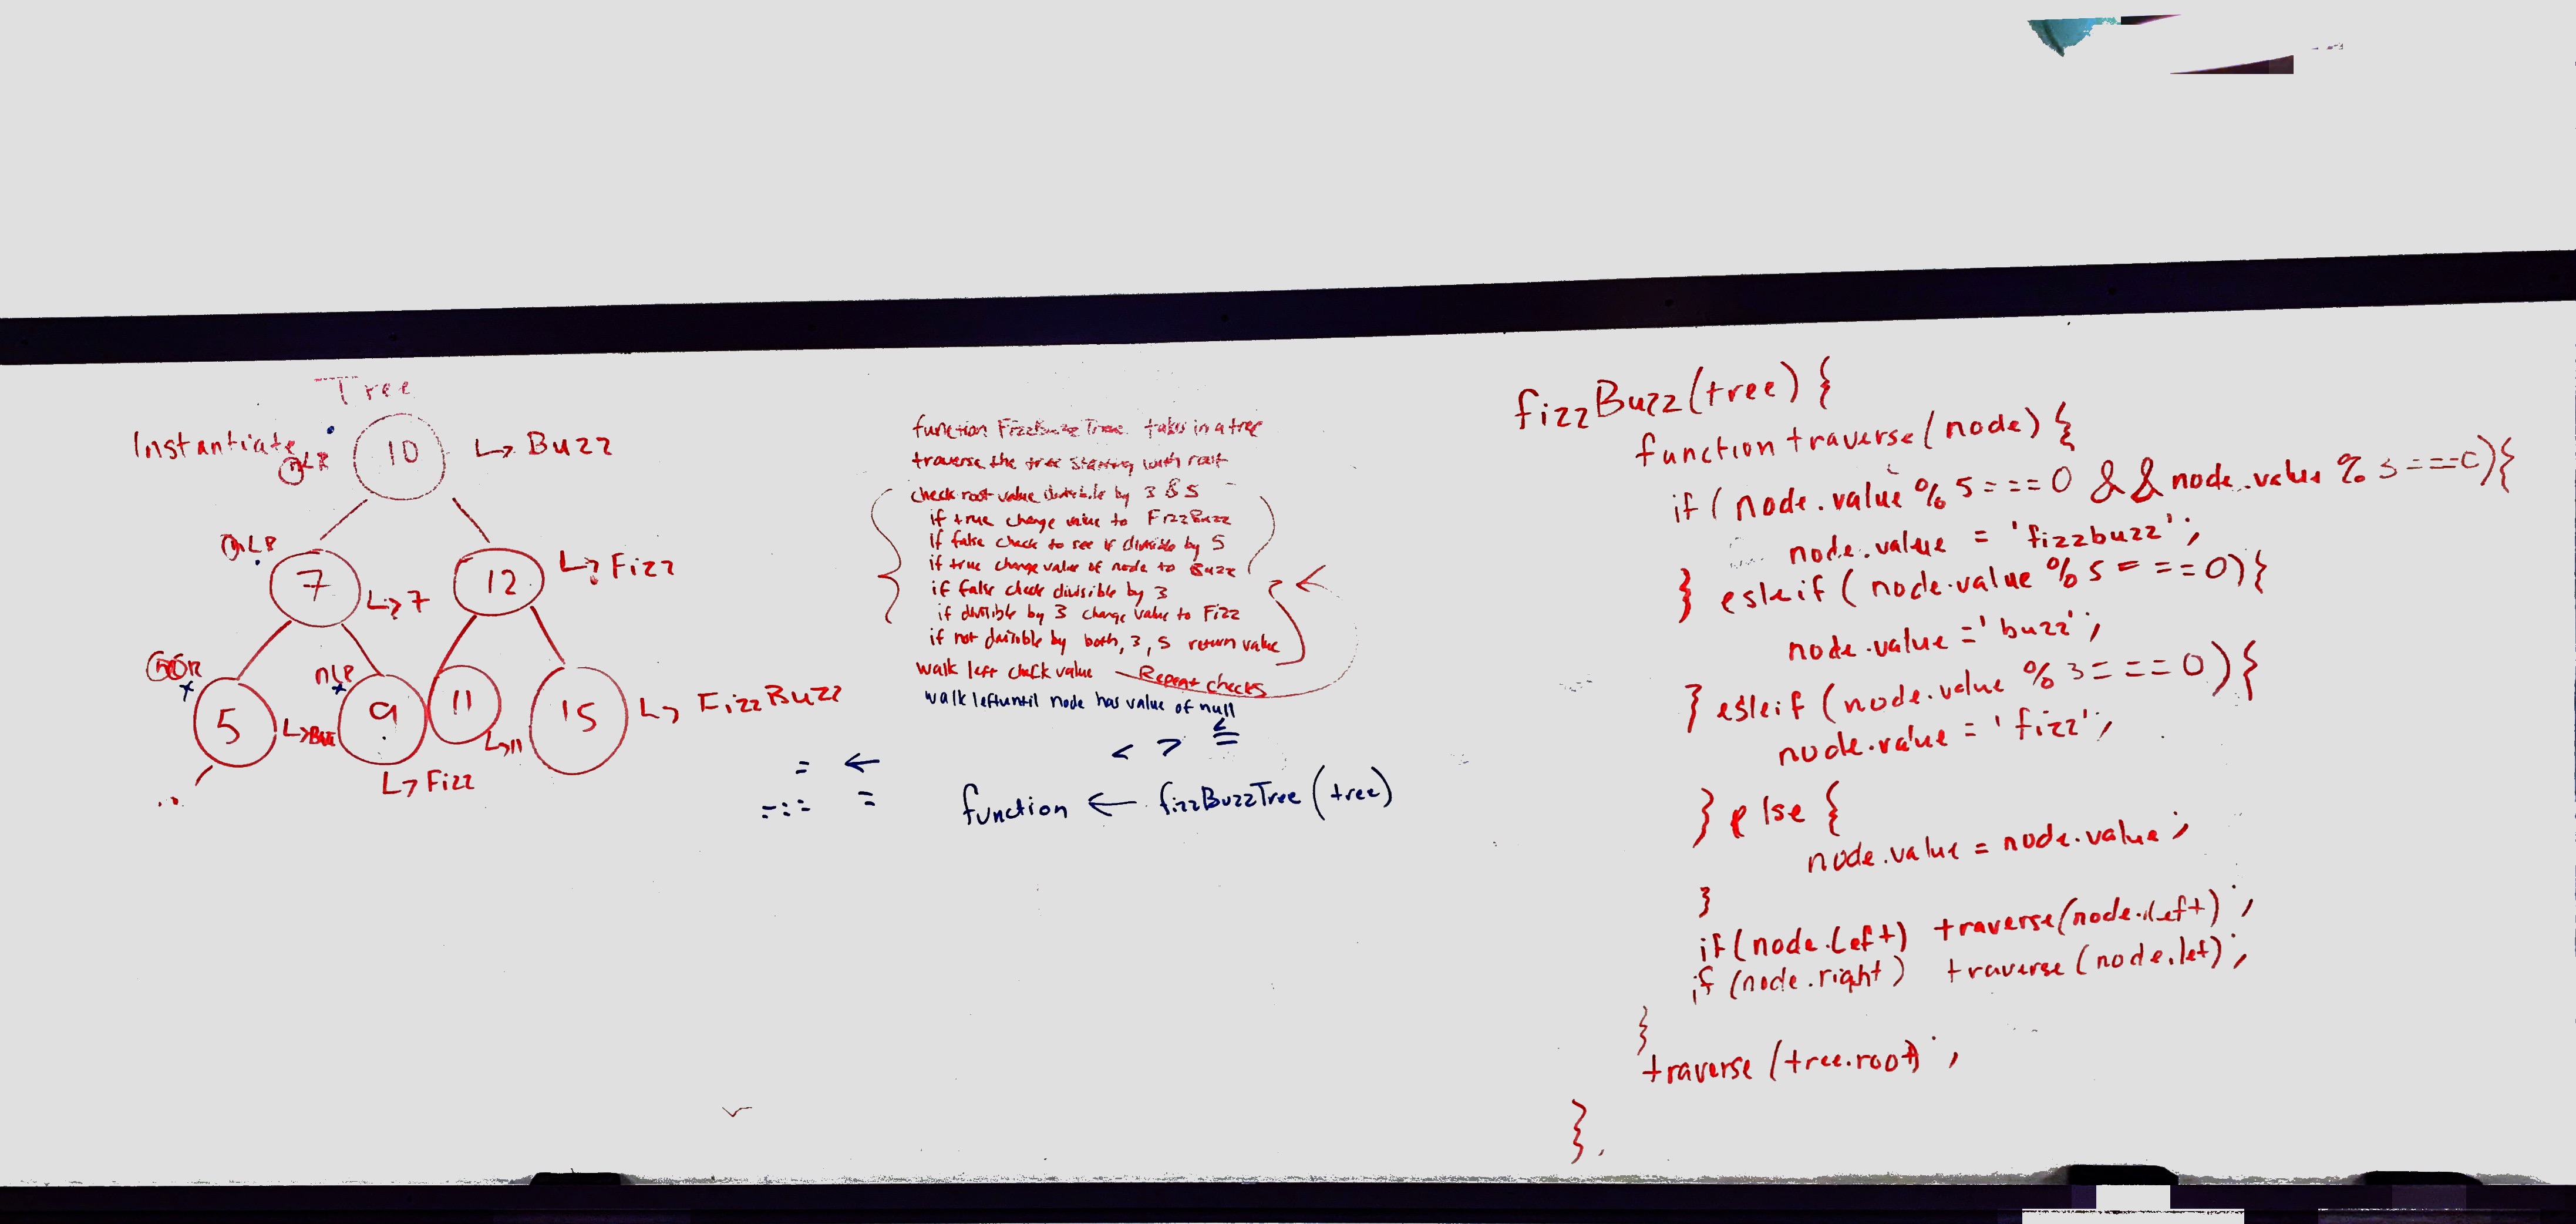 Tree
Instantiate
nLR
10
L> Buzz
nLR
7
L> 7
12
L> Fizz
nLR
5
nLR
9
L> Fizz
11
L> 11
15
L> FizzBuzz
function FizzBuzzTree takes in a tree
traverse the tree starting with root
check root value divisible by 3 & 5
if true change value to FizzBuzz
if false check to see if divisible by 5
if true change value of node to Buzz
if false check divisible by 3
if divisible by 3 change value to Fizz
if not divisible by both, 3, 5 return value
walk left check value Repeat checks
walk left until node has value of null
< > <=
= ←
=== =
function ← fizzBuzzTree(tree)
fizzBuzz(tree) {
function traverse(node) {
if (node.value % 5 === 0 && node.value % 3 === 0){
node.value = 'fizzbuzz';
} esleif (node.value % 5 === 0){
node.value = 'buzz';
} esleif (node.value % 3 === 0){
node.value = 'fizz';
} else {
node.value = node.value;
}
if (node.left) traverse(node.left);
if (node.right) traverse(node.let);
}
traverse(tree.root);
}.